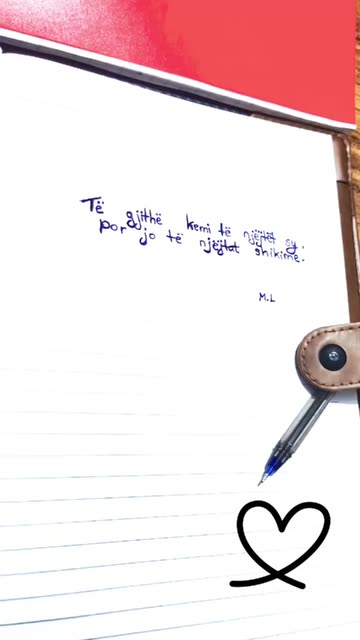 Të gjithë kemi të njëjtët sy.
por jo të njëjtat shikime.
M.L